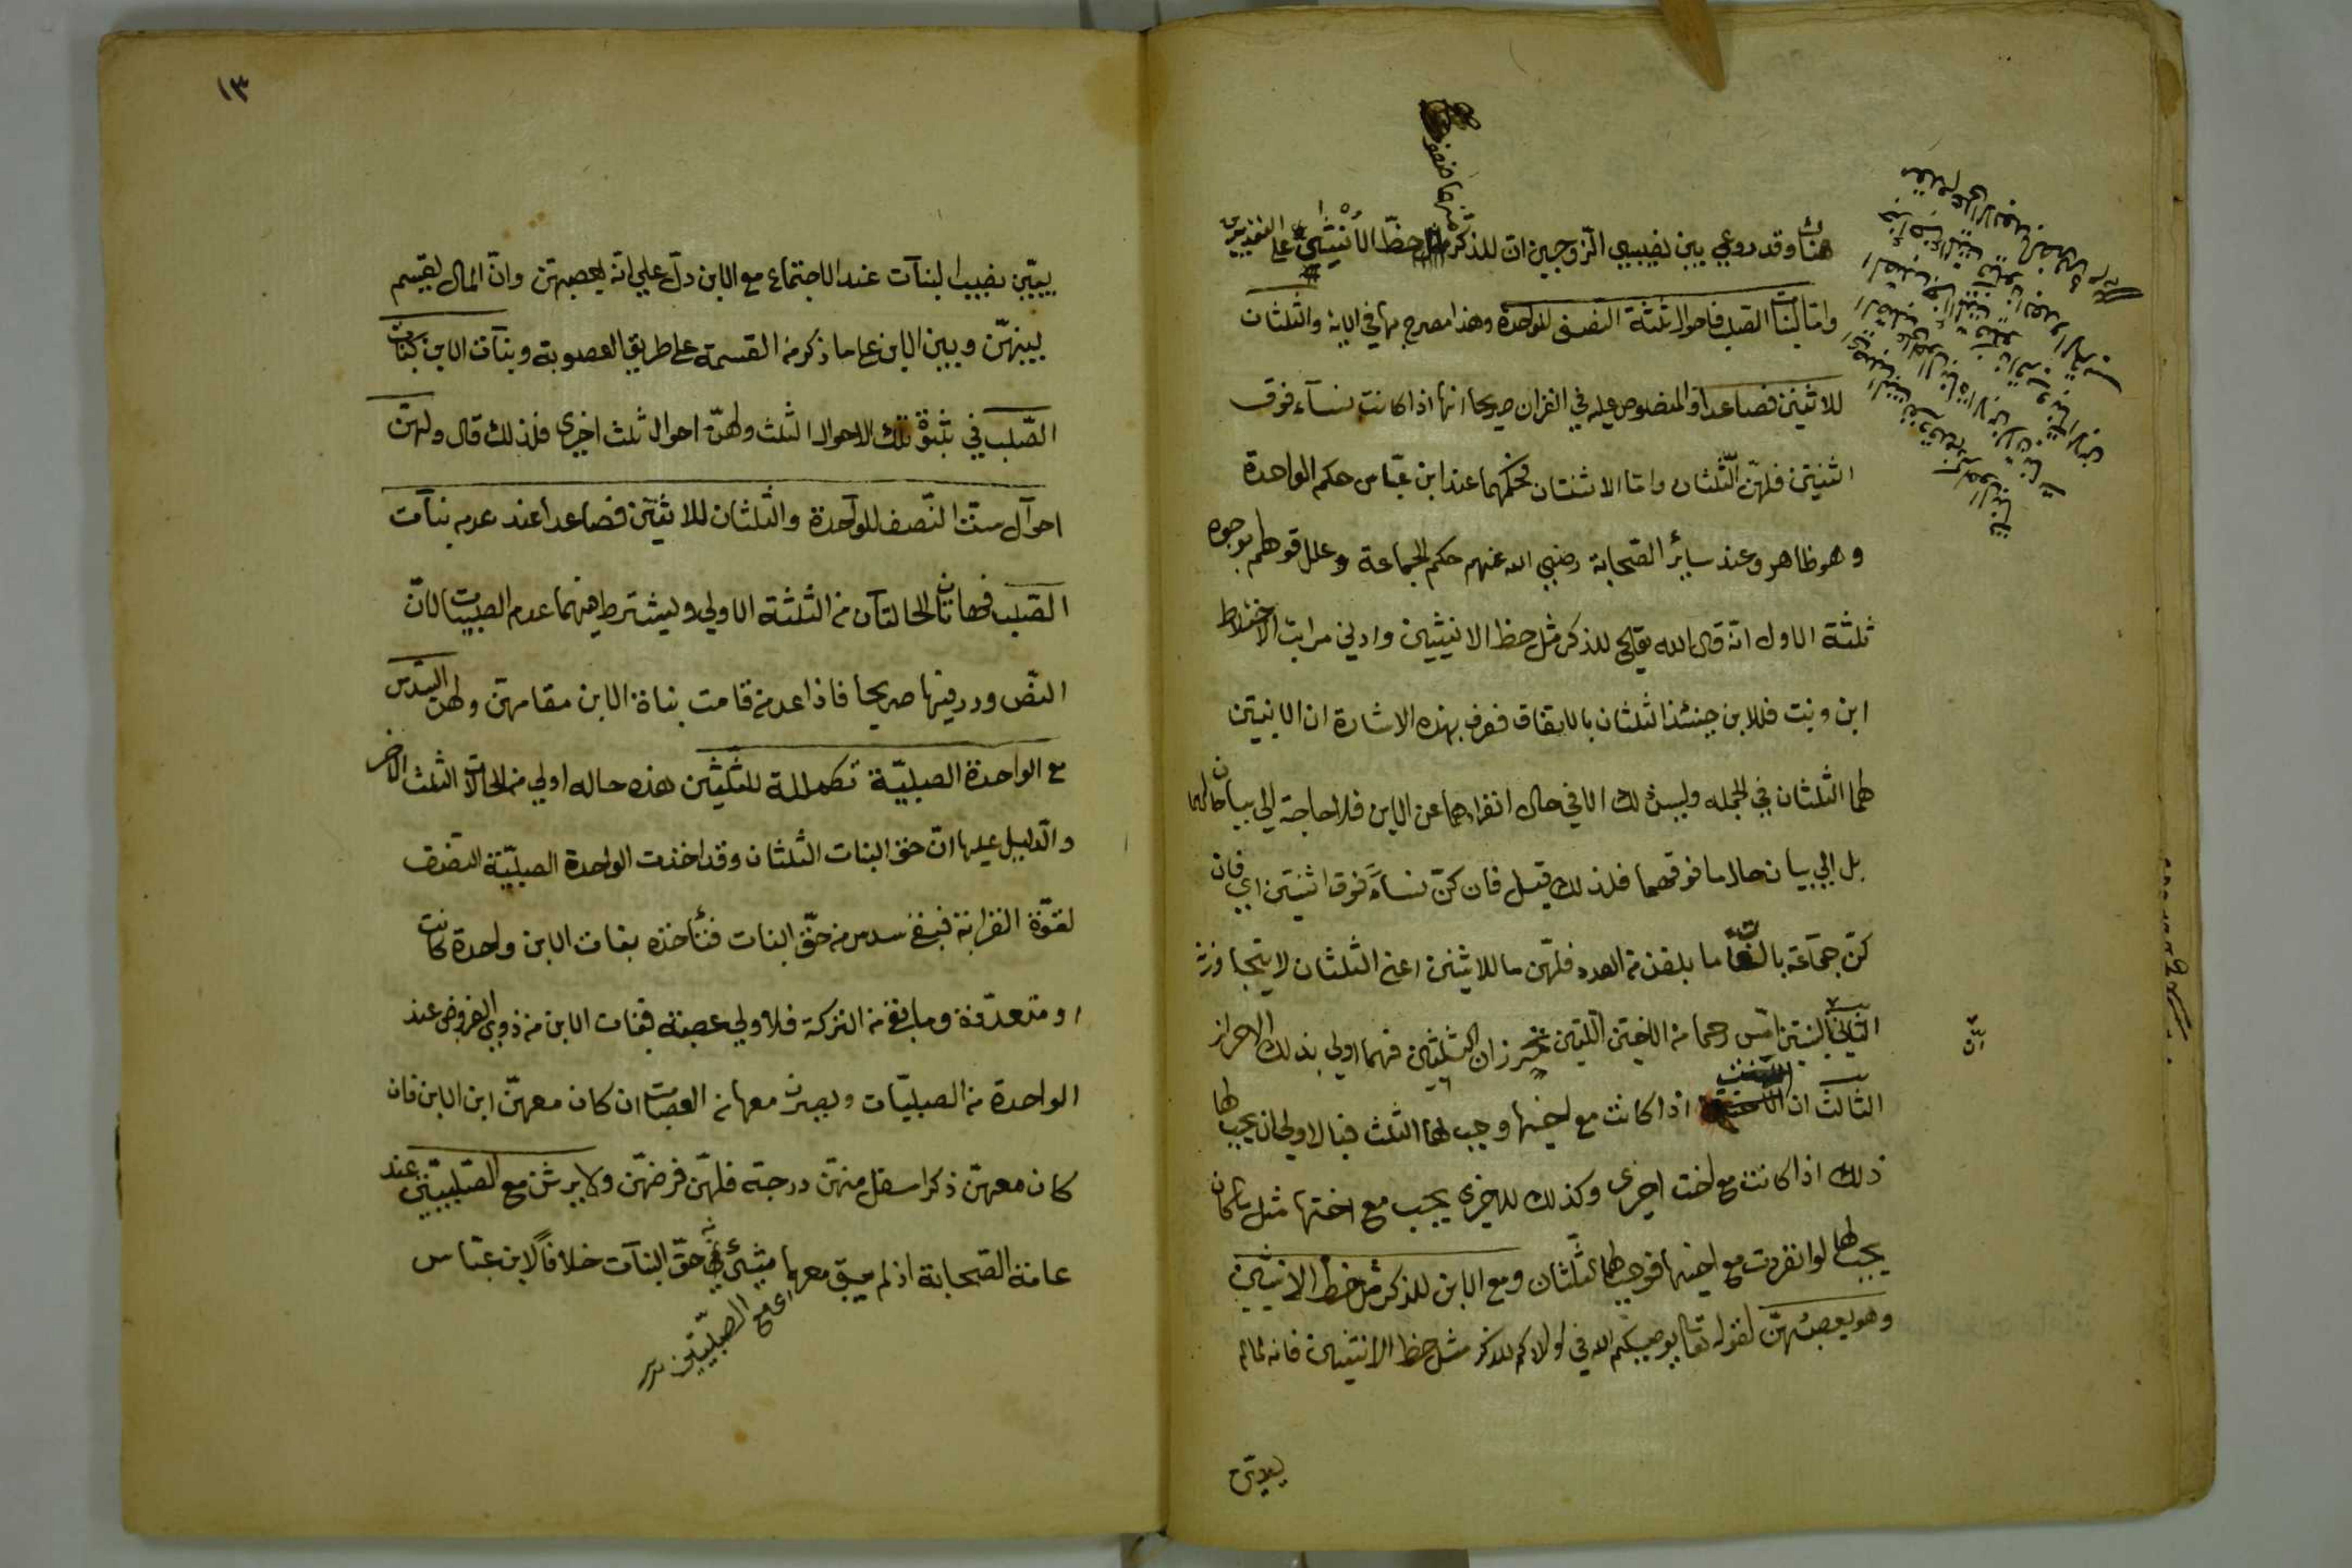 هناك وقد روعي بين نصيبي الزوجين ان للذكر مثل حظ الأنثيين على التقديرين
واما لبنات الصلب فاحوال ثلثة النصف للواحدة وهذا مصرح بها في الاية والثلثان
للاثنين فصاعدا والمنصوص عليه في القران صريحا انها اذا كانت نسآء فوق
اثنتين فلهن الثلثان واما الاثنتان فحكمهما عند ابن عباس حكم الواحدة
وهو ظاهر وعند سائر الصحابة رضي الله عنهم حكم الجماعة وعلل قولهم بوجوه
ثلثة الاول انه قال الله تعالى للذكر مثل حظ الانثيين وادنى مراتب الاختلاط
ابن وبنت فللابن حينئذ الثلثان بالاتفاق فعرف بهذه الاشارة ان الانثيين
لهما الثلثان في الجمله وليس ذلك الا في حال انفرادهما عن الابن فلا حاجة الى بيان حالهما
بل الى بيان حال ما فوقهما فلذلك قيل فان كن نسآء فوق اثنتين اي فان
كن جماعة بالغات ما بلغن من العدد فلهن ما للاثنين اعني الثلثان لا يتجاوزنه
الثاني البنتين امس رحما من الاختين اللتين تحرزان الثلثين فهما اولى بذلك الاحراز
الثالث ان البنت اذا كانت مع اخيها وجب لها الثلث فبالاولى ان يجب لها
ذلك اذا كانت مع اخت اخرى وكذلك للاخرى يجب مع اختها مثل ما كان
يجب لها لو انفردت مع اخيها فوجب لهما الثلثان ومع الابن للذكر مثل حظ الانثيين
وهو يعصبهن لقوله تعا يوصيكم الله في اولادكم للذكر مثل حظ الانثيين فانه لما لم
١٣
يبين نصيب البنات عند الاجتماع مع الابن دل على انه يعصبهن وان المال يقسم
بينهن وبين الابن على ما ذكر من القسمة على طريق العصوبة وبنات الابن كبنات
الصلب في ثبوت تلك الاحوال الثلث ولهن احوال ثلث اخرى فلذلك قال ولهن
احوال ست النصف للواحدة والثلثان للاثنتين فصاعدا عند عدم بنات
الصلب فهاتان الحالتان من الثلثة الاولى ويشترط فيهما عدم الصلبيات لان
النص ورد فيها صريحا فاذا عدمن قامت بناة الابن مقامهن ولهن السدس
مع الواحدة الصلبية تكملة للثلثين هذه حاله اولى من الحالات الثلث الاخر
والدليل عليها ان حق البنات الثلثان وقد اخذت الواحدة الصلبية النصف
لقوة القرابة فبقي سدس من حق البنات فتأخذه بنات الابن واحدة كانت
او متعددة وما بقي من التركة فلاولى عصبة فبنات الابن من ذوي الفروض عند
الواحدة من الصلبيات ويصرن معها من العصبات ان كان معهن ابن الابن فان
كان معهن ذكر اسفل منهن درجة فلهن فرضهن ولا يرثن مع الصلبيتين عند
عامة الصحابة اذ لم يبق معهما شئ من حق البنات خلافا لابن عباس
اي مع الصلبيتين